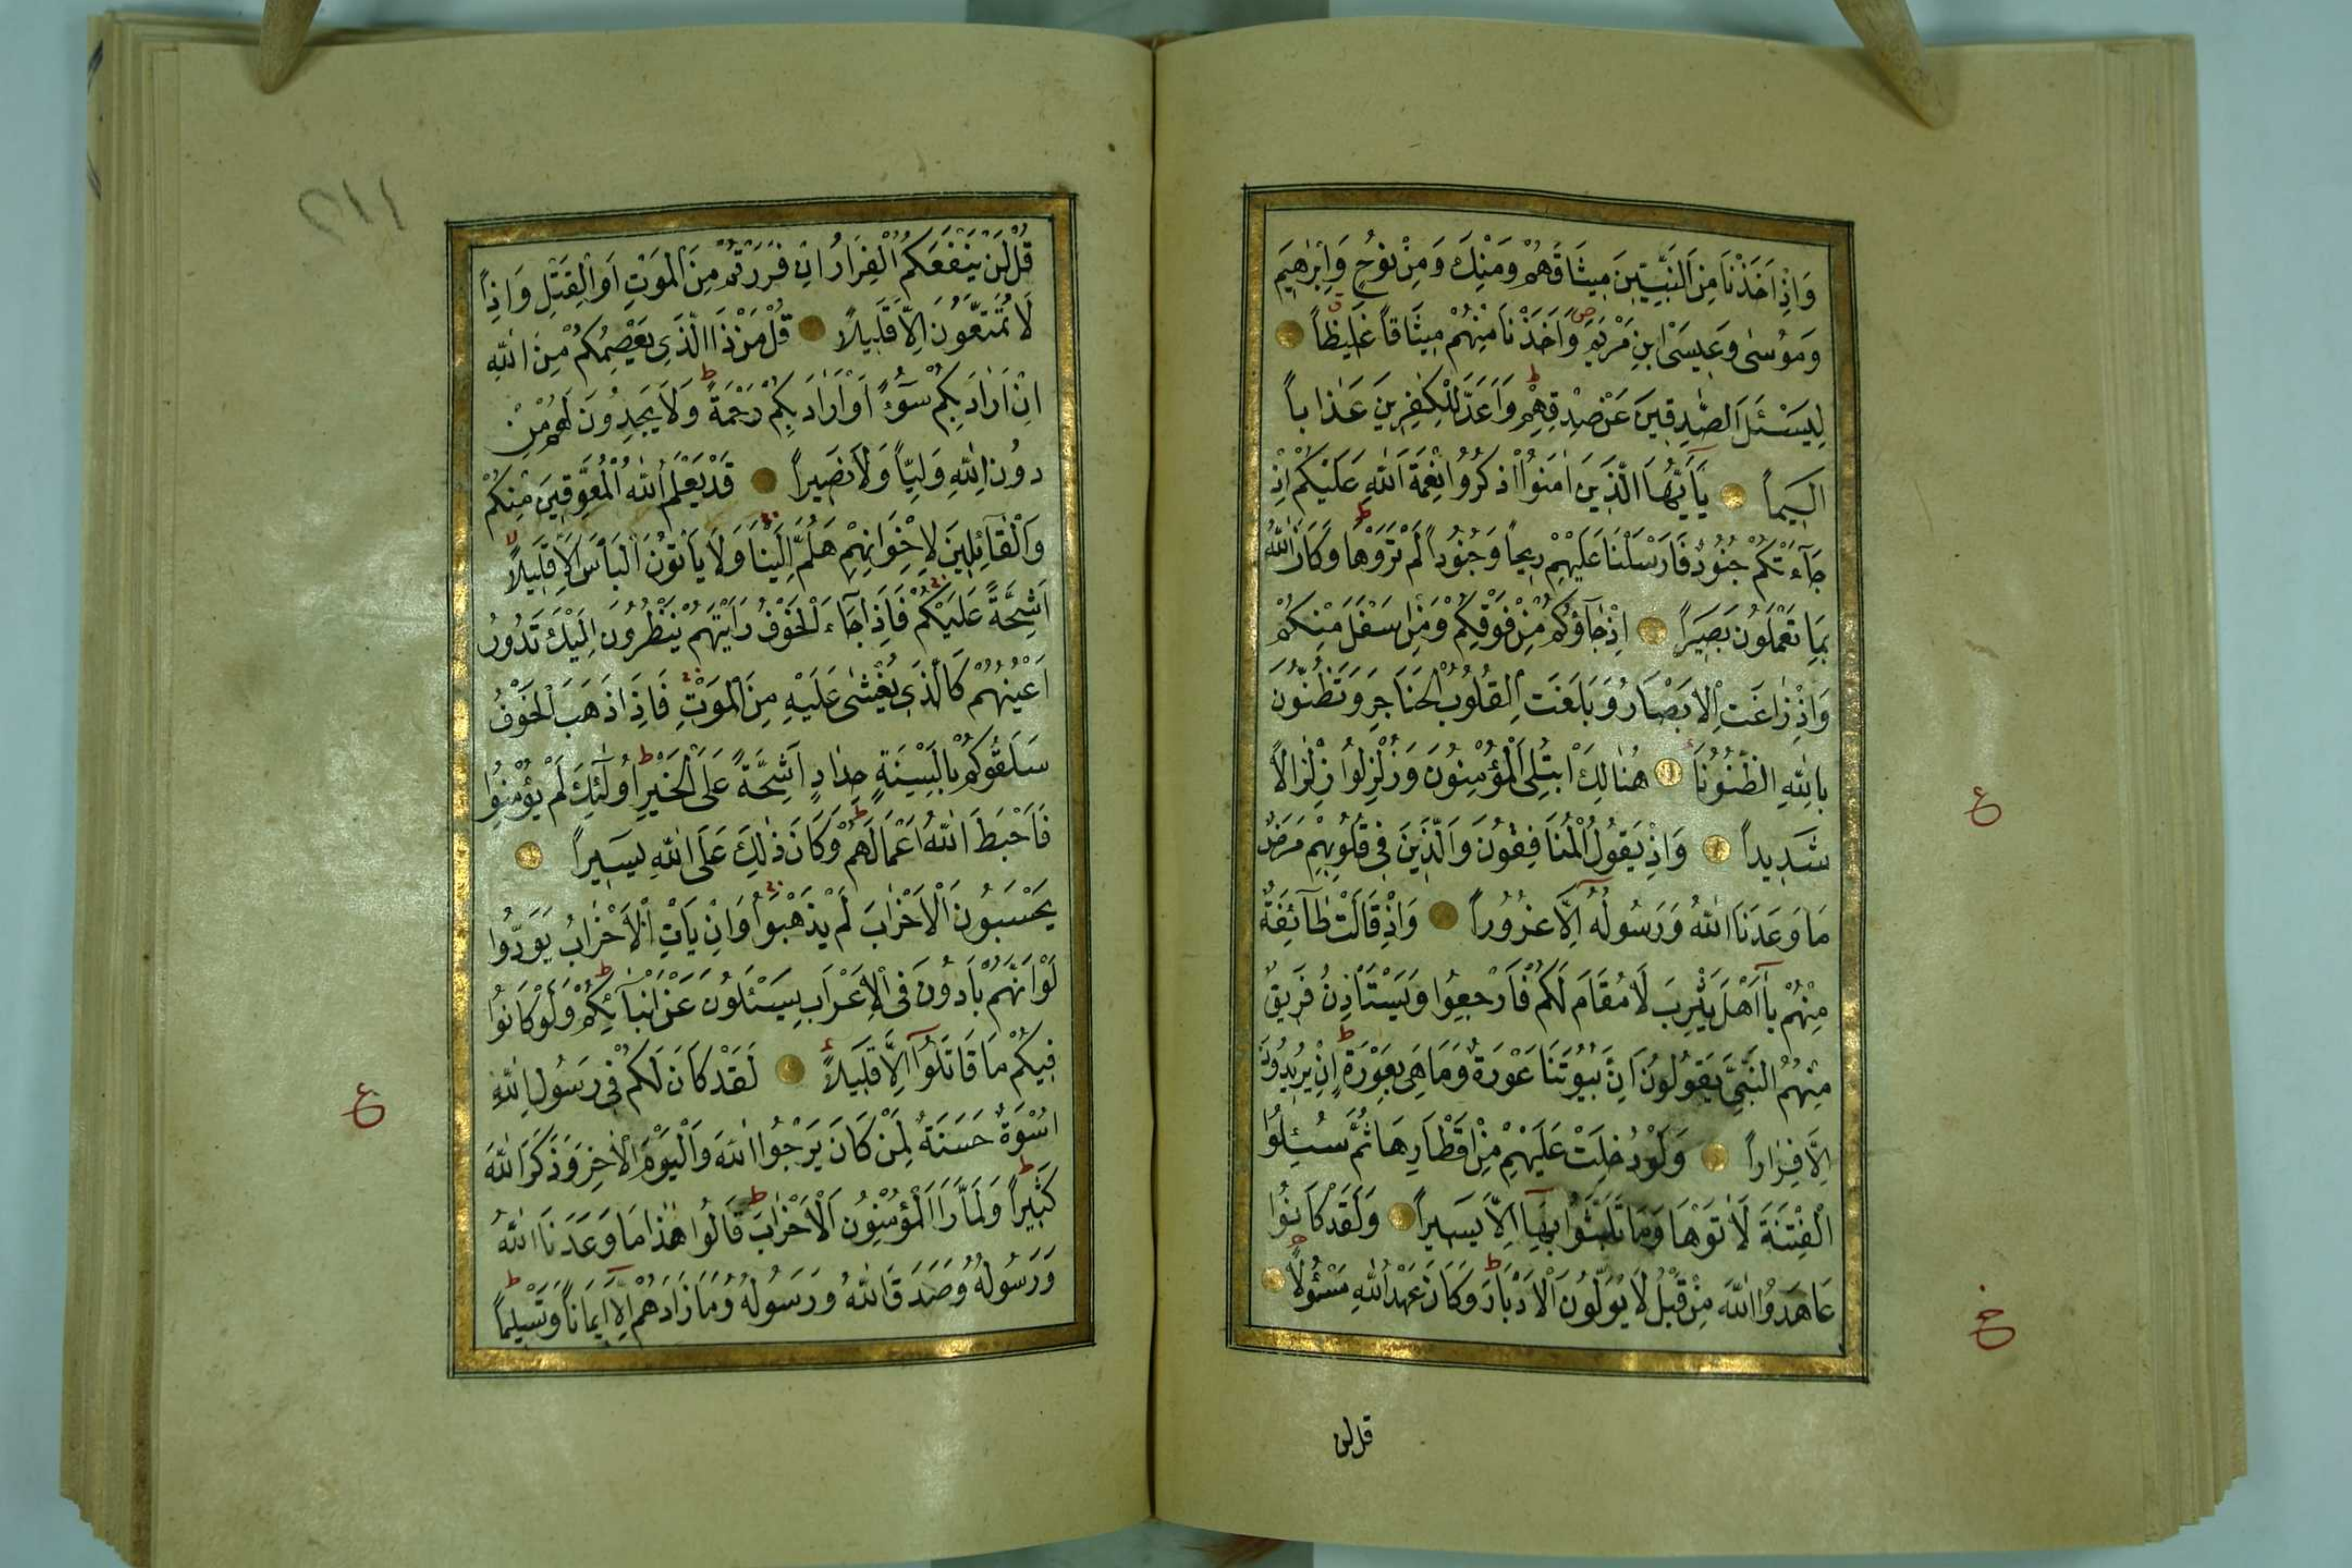 وَاِذْ اَخَذْنَا مِنَ النَّبِيّٖنَ مِيثَاقَهُمْ وَمِنْكَ وَمِنْ نُوحٍ وَاِبْرٰهِيمَ
وَمُوسٰى وَعِيسَى ابْنِ مَرْيَمَ وَاَخَذْنَا مِنْهُمْ مِيثَاقاً غَلِيظاً
لِيَسْئَلَ الصّٰدِقِينَ عَنْ صِدْقِهِمْ وَاَعَدَّ لِلْكٰفِرِينَ عَذَاباً
اَلِيماً يَآاَيُّهَا الَّذِينَ اٰمَنُوا اذْكُرُوا نِعْمَةَ اللّٰهِ عَلَيْكُمْ اِذْ
جَآءَتْكُمْ جُنُودٌ فَاَرْسَلْنَا عَلَيْهِمْ رِيحاً وَجُنُوداً لَمْ تَرَوْهَا وَكَانَ اللّٰهُ
بِمَا تَعْمَلُونَ بَصِيراً اِذْ جَآؤُكُمْ مِنْ فَوْقِكُمْ وَمِنْ اَسْفَلَ مِنْكُمْ
وَاِذْ زَاغَتِ الْاَبْصَارُ وَبَلَغَتِ الْقُلُوبُ الْحَنَاجِرَ وَتَظُنُّونَ
بِاللّٰهِ الظُّنُونَا هُنَالِكَ ابْتُلِىَ الْمُؤْمِنُونَ وَزُلْزِلُوا زِلْزَالاً
شَدِيداً وَاِذْ يَقُولُ الْمُنَافِقُونَ وَالَّذِينَ فِى قُلُوبِهِمْ مَرَضٌ
مَا وَعَدَنَا اللّٰهُ وَرَسُولُهُ اِلَّا غُرُوراً وَاِذْ قَالَتْ طَآئِفَةٌ
مِنْهُمْ يَآاَهْلَ يَثْرِبَ لَا مُقَامَ لَكُمْ فَارْجِعُوا وَيَسْتَاْذِنُ فَرِيقٌ
مِنْهُمُ النَّبِىَّ يَقُولُونَ اِنَّ بُيُوتَنَا عَوْرَةٌ وَمَا هِىَ بِعَوْرَةٍ اِنْ يُرِيدُونَ
اِلَّا فِرَاراً وَلَوْ دُخِلَتْ عَلَيْهِمْ مِنْ اَقْطَارِهَا ثُمَّ سُئِلُوا
الْفِتْنَةَ لَاٰتَوْهَا وَمَا تَلَبَّثُوا بِهَآ اِلَّا يَسِيراً وَلَقَدْ كَانُوا
عَاهَدُوا اللّٰهَ مِنْ قَبْلُ لَا يُوَلُّونَ الْاَدْبَارَ وَكَانَ عَهْدُ اللّٰهِ مَسْؤُلاً
ع
ع
قل لن
٢١١
قُلْ لَنْ يَنْفَعَكُمُ الْفِرَارُ اِنْ فَرَرْتُمْ مِنَ الْمَوْتِ اَوِ الْقَتْلِ وَاِذاً
لَا تُمَتَّعُونَ اِلَّا قَلِيلاً قُلْ مَنْ ذَا الَّذِى يَعْصِمُكُمْ مِنَ اللّٰهِ
اِنْ اَرَادَ بِكُمْ سُوٓءً اَوْ اَرَادَ بِكُمْ رَحْمَةً وَلَا يَجِدُونَ لَهُمْ مِنْ
دُونِ اللّٰهِ وَلِيًّا وَلَا نَصِيراً قَدْ يَعْلَمُ اللّٰهُ الْمُعَوِّقِينَ مِنْكُمْ
وَالْقَآئِلِينَ لِاِخْوَانِهِمْ هَلُمَّ اِلَيْنَا وَلَا يَاْتُونَ الْبَاْسَ اِلَّا قَلِيلاً
اَشِحَّةً عَلَيْكُمْ فَاِذَا جَآءَ الْخَوْفُ رَاَيْتَهُمْ يَنْظُرُونَ اِلَيْكَ تَدُورُ
اَعْيُنُهُمْ كَالَّذِى يُغْشٰى عَلَيْهِ مِنَ الْمَوْتِ فَاِذَا ذَهَبَ الْخَوْفُ
سَلَقُوكُمْ بِاَلْسِنَةٍ حِدَادٍ اَشِحَّةً عَلَى الْخَيْرِ اُولٰٓئِكَ لَمْ يُؤْمِنُوا
فَاَحْبَطَ اللّٰهُ اَعْمَالَهُمْ وَكَانَ ذٰلِكَ عَلَى اللّٰهِ يَسِيراً
يَحْسَبُونَ الْاَحْزَابَ لَمْ يَذْهَبُوا وَاِنْ يَاْتِ الْاَحْزَابُ يَوَدُّوا
لَوْ اَنَّهُمْ بَادُونَ فِى الْاَعْرَابِ يَسْئَلُونَ عَنْ اَنْبَآئِكُمْ وَلَوْ كَانُوا
فِيكُمْ مَا قَاتَلُوٓا اِلَّا قَلِيلاً لَقَدْ كَانَ لَكُمْ فِى رَسُولِ اللّٰهِ
اُسْوَةٌ حَسَنَةٌ لِمَنْ كَانَ يَرْجُوا اللّٰهَ وَالْيَوْمَ الْاٰخِرَ وَذَكَرَ اللّٰهَ
كَثِيراً وَلَمَّا رَاَ الْمُؤْمِنُونَ الْاَحْزَابَ قَالُوا هٰذَا مَا وَعَدَنَا اللّٰهُ
وَرَسُولُهُ وَصَدَقَ اللّٰهُ وَرَسُولُهُ وَمَا زَادَهُمْ اِلَّآ اِيمَاناً وَتَسْلِيماً
ع